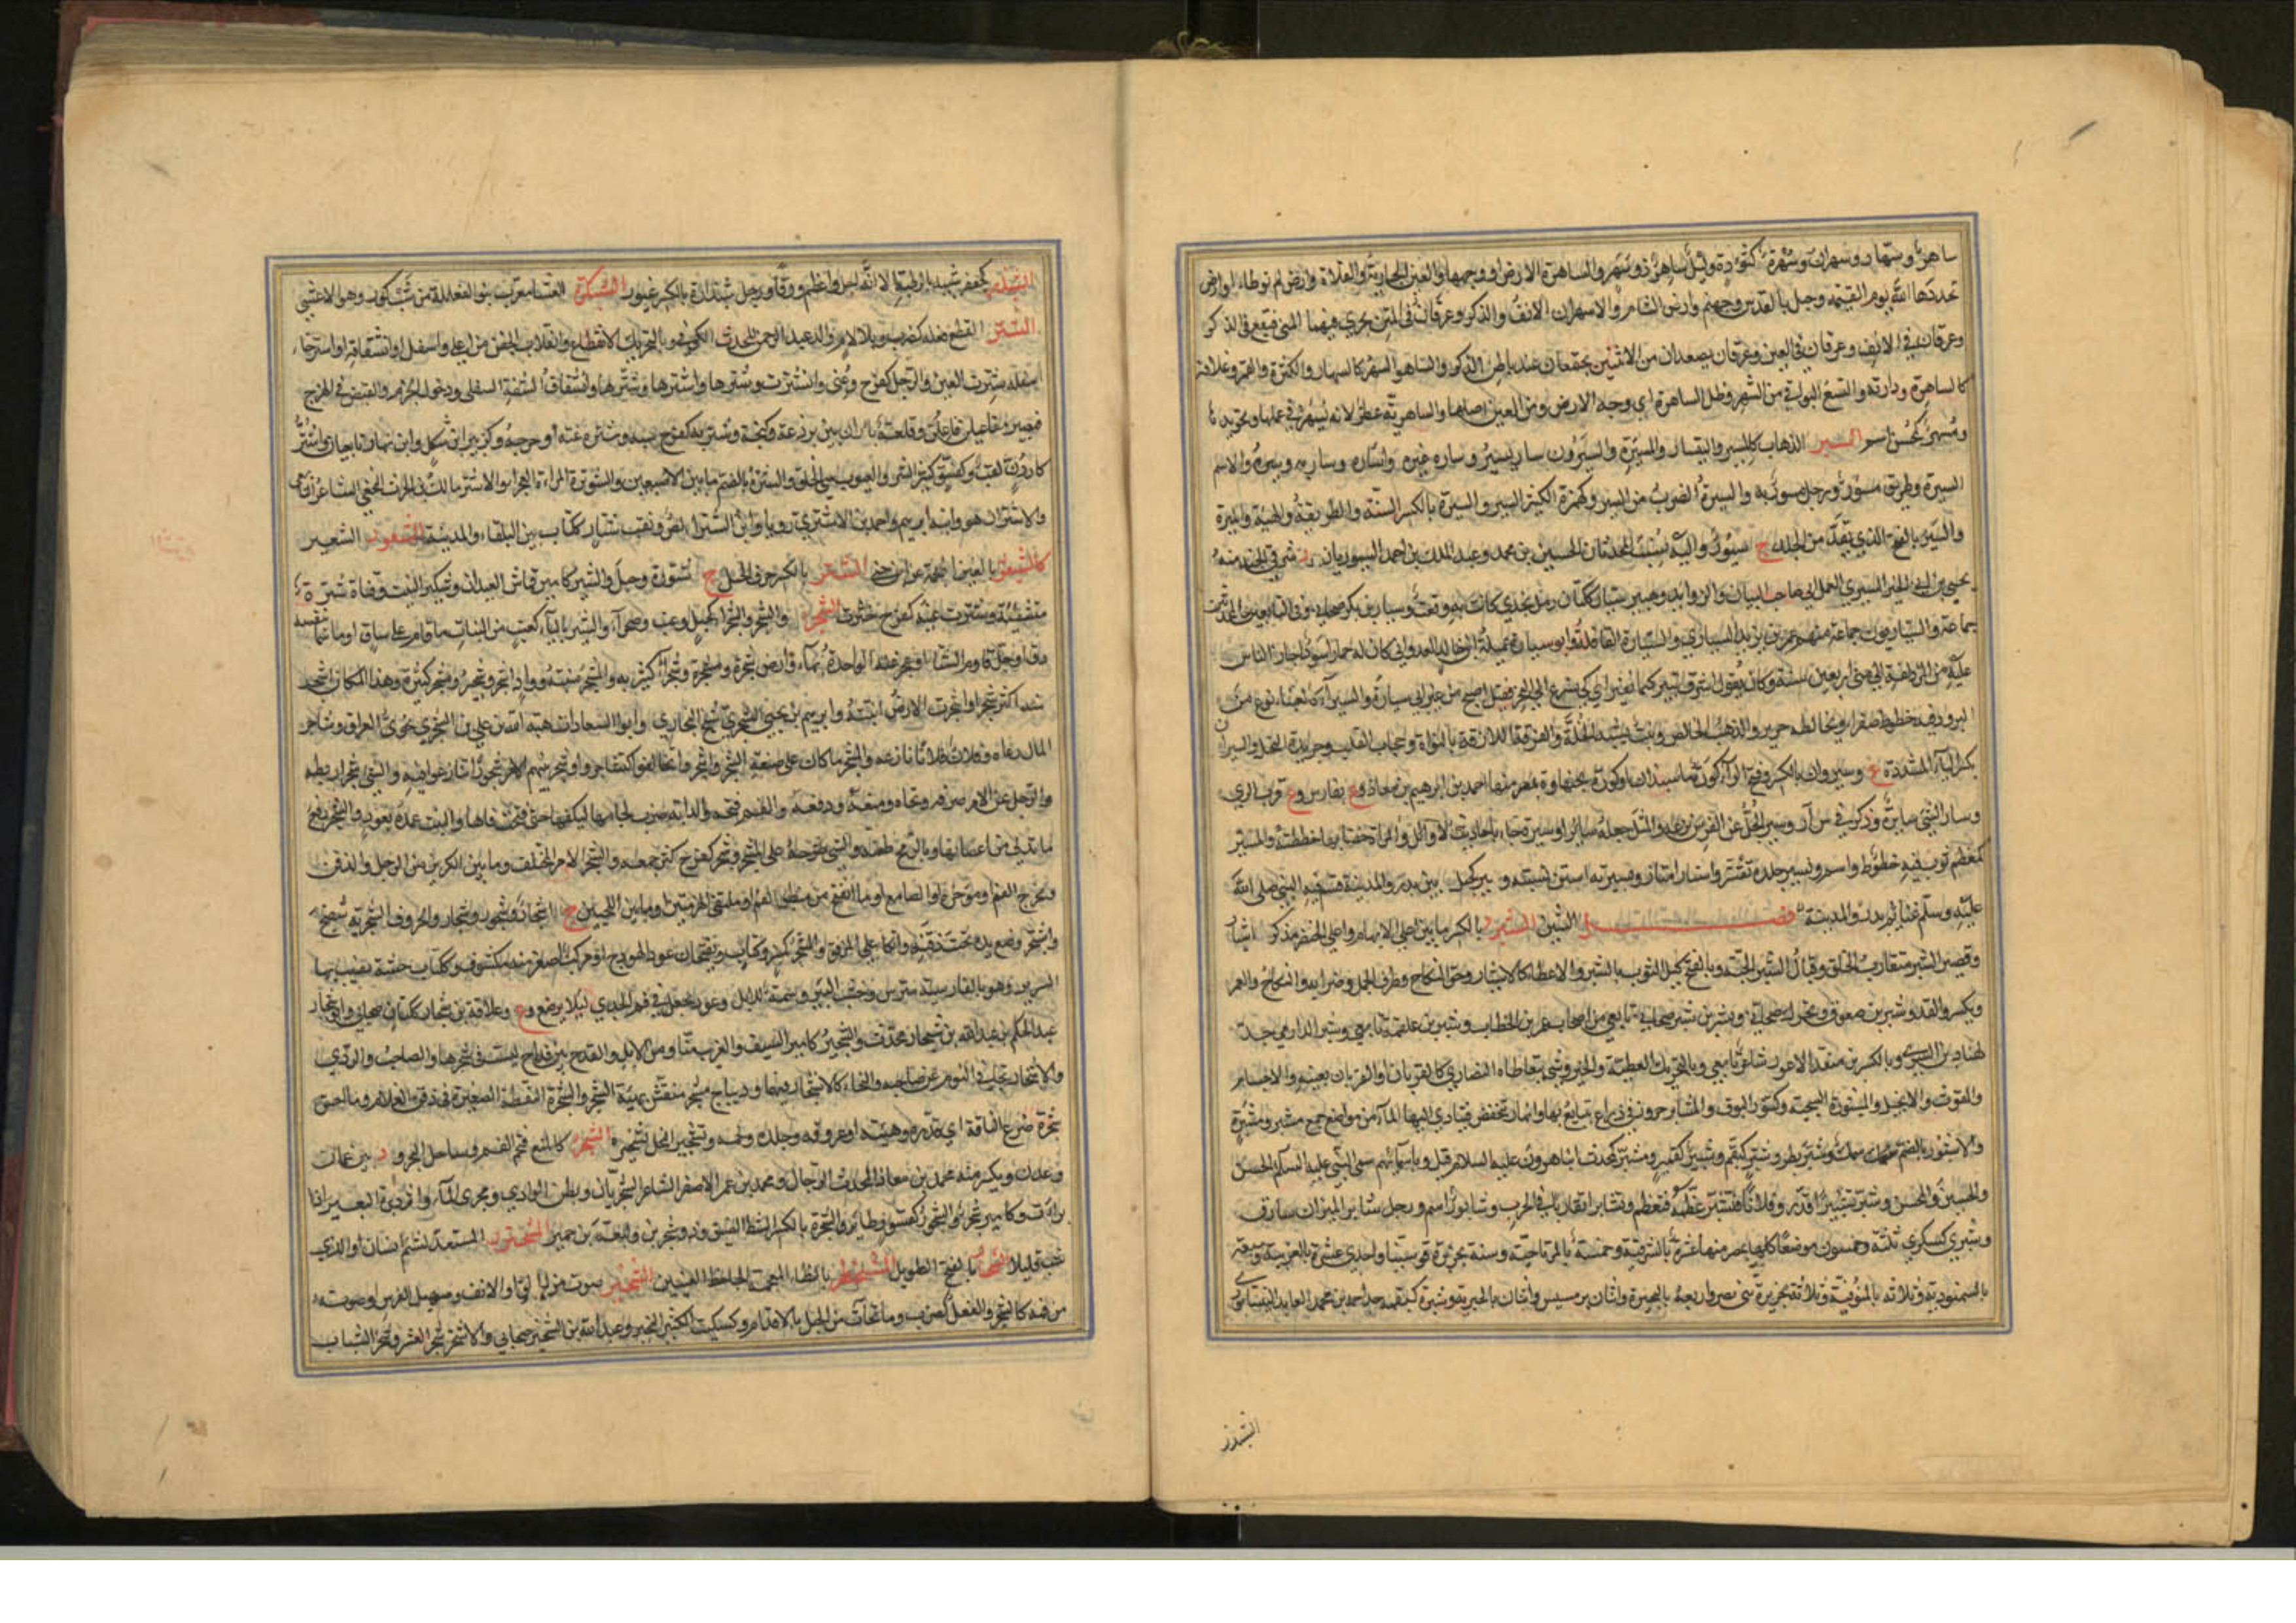 ساهرٌ وسهّار وسهران وسُهَرَة كتُؤَدة وليل ساهر ذو سهر والساهرة الارض او وجهها والعين الجارية والفلاة وارض لم توطأ او ارض
يجددها الله يوم القيمة وجبل بالقدس وجهنم وارض الشام والاسهران الانف والذكر وعرقان في المتن يجري فيهما المني فيقع في الذكر
وعرقان في الانف وعرقان في العين وعرقان يصعدان من الانثيين يجتمعان عند باطن الذكر والساهور السهر كالسهار والكثرة والقمر وغلافه
كالساهرة ودارته والتسع البواقي من الشهر وظل الساهرة اي وجه الارض ومن العين اصلها والساهرية عطر لانه يُسهر في عملها وتجويدها
ومُسهر كمحسن اسم السير الذهاب كالمسير والتسيار والمسيرة والسيرورة سار يسير وساره غيره واساره وسار به وسيره والاسم
السيرة وطريق مسور ورجل مسور به والسيرة الضرب من السير وكهمزة الكثير السير والسيرة بالكسر السنة والطريقة والهيئة والميرة
والسير بالفتح الذي يقد من الجلد ج سيور واليه نسب المحدثان الحسين بن محمد وعبد الملك بن احمد السيوريان و د شرقي الجند منه
يحيى بن ابي الخير السيري العمراني صاحب البيان والزوائد وهبير سيار ككتان رمل نجدي كانت به وقعة وسيار بن بكر صحابي وفي التابعين والمحدثين
جماعة والسياريون جماعة منهم عمر بن يزيد السياري والسيارة القافلة وابو سيارة عميلة بن خالد العدواني كان له حمار اسود اجاز الناس
عليه من المزدلفة الى منى اربعين سنة وكان يقول اشرق ثبير كيما نغير اي كي نسرع الى النحر فقيل اصح من عير ابي سيارة والسيراء كالعنباء نوع من
البرود فيه خطوط صفر او يخالطه حرير والذهب الخالص ونبت يشبه الخلة والقرفة اللازقة بالنواة وحجاب القلب وجريدة النخلة والسيران
بكسر الياء المشددة ع وسيروان بالكسر وفتح الراء كورة ماسبذان او كورة بجنبها وة بمصر منها احمد بن ابرهيم بن معاذ و ع بفارس و ع قرب الري
وسار الشيء سائره وذكر في س أ ر وسير الجل عن الفرس نزعه والمثل جعله سائرا وسيرة جاء باحاديث الاوائل والمراة خضابها خططته والمسير
كمعظم ثوب فيه خطوط واسم وتسير جلده تقشر واستار امتار وبسيرته استن بسنته وسير كجبل بين بدر والمدينة قسم فيه النبي صلى الله
عليه وسلم غنائم بدر والمدينة فصل الشين الشبر بالكسر ما بين اعلى الابهام واعلى الخنصر مذكر اشبار
وقصير الشبر متقارب الخلق وقبال الشبر الحية وبالفتح كيل الثوب بالشبر والاعطاء كالاشبار وحق النكاح وطرق الجمل وضرابه والنكاح والعمر
ويكسر والقد وشبر بن صعفوق ويحرك صحابي وبشر بن شبر صحابي تابعي من اصحاب عمر بن الخطاب وشبر بن علقمة تابعي وشبر الدارمي جد
لهناد بن السري وبالكسر بن منقذ الاعور شاعر تابعي وبالتحريك العطية والخير وشيء يتعاطاه النصارى كالقربان او القربان بعينه والاجسام
والقوت والانجيل والمشبورة السخية وكتنور البوق والمشابر حزوز في ذراع يتبايع بها وانهار تنخفض فيتادى اليها الماء من مواضع جمع مشبر ومشبرة
والاشبور بالضم سمك وشبر بطر وشبر كبقم وشبير كقمير ومشبر كمحدث ابناء هرون عليه السلام قيل وباسمائهم سمى النبي عليه السلام الحسن
والحسين والمحسن وشبر تشبيرا قدر وفلانا فتشبر عظمه فتعظم وتشابرا تقاربا في الحرب وشابور اسم ورجل شابر الميزان سارق
وشبرى كسكرى ثلثة وخمسون موضعا كلها بمصر منها عشرة بالشرقية وخمسة بالمرتاحية وستة بجزيرة قوسنيا واحدى عشرة بالغربية وسبعة
بالسمنودية وثلاثة بالمنوفية وثلاثة بجزيرة بني نصر واربعة بالبحيرة واثنان برمسيس واثنان بالجيزية وشبرة كبقمة جد احمد بن محمد العابد النيسابوري
الشبذر
الشبذر كجعفر شبيه بالرطبة الا انه اجل واعظم ورقا ورجل شبذارة بالكسر غيور الشبكرة العشا معرب بنوا الفعللة من شب كور وهو الاعشى
الشتر القطع فعله كضرب وبلا لام والد عبد الرحمن المحدث الكوفي وبالتحريك الانقطاع وانقلاب الجفن من اعلى واسفل وانشقاقه او استرخاء
اسفله شترت العين والرجل كفرح وعُني وانشترت وشترها واشترها وشترها وانشقاق الشفة السفلى ودخول الخرم والقبض في الهزج
فيصير مفاعيلن فاعلن وقلعة باران بين برذعة وكنجة وشتر به كفرح سبه وشتره غته وجرحه وكزبير ابن شكل وابن نهار تابعيان واشتر
كاردن لقب وكفسيق كثير الشر والعيوب سيئ الخلق والشترة بالضم ما بين الاصبعين والشوترة المراة العجزاء والاشتر مالك بن الحرث النخعي الشاعر التابعي
والاشتران هو وابنه ابرهيم واحمد بن الاشتري روينا وابن الشترا لص ونقب شتار ككتاب بين البلقاء والمدينة الشتعور الشعير
كالشيتغور بالغين المعجمة عن ابن جني الشثر بالكسر حرف الجبل ج شثورة وجبل والشثير كامير قماش العيدان وشكير النبت وقناة شثرة
متشظية وشثرت عينه كفرح خثرت الشجر والشجر والشجراء كجبل وعنب وصحراء والشير بالياء كعنب من النبات ما قام على ساق او ما سما بنفسه
دق او جل قاوم الشتاء او عجز عنه الواحدة بهاء وارض شجرة ومشجرة وشجراء كثيرته والمشجر منبته وواد اشجر وشجير ومشجر كثيره وهذا المكان اشجر
منه اكثر شجرا واشجرت الارض انبتته وابرهيم بن يحيى الشجري شيخ البخاري وابو السعادات هبة الله بن علي بن الشجري نحوي العراق وشاجر
المال رعاه وفلان فلانا نازعه والمشجر ما كان على صنعة الشجر واشتجروا تخالفوا كتشاجروا وشجر بينهم الامر شجورا تنازعوا فيه والشيء شجرا ربطه
والرجل عن الامر صرفه ونحاه ومنعه ودفعه والفم فتحه والدابة ضرب لجامها ليكفها حتى فتحت فاها والبيت عمده بعود والشجرة رفع
ما تدلى من اغصانها وبالرمح طعنه والشيء طرحه على المشجر وشجر كفرح كثر جمعه والشجر الامر المختلف وما بين الكرين من الرحل والذقن
ومخرج الفم او مؤخره او الصامغ او ما انفتح من منطبق الفم او ملتقى اللهزمتين او ما بين اللحيين ج اشجار وشجور وشجار والحروف الشجرية شضج
واشتجر وضع يده تحت ذقنه واتكأ على المرفق والمشجر كمنبر وكتاب ويفتحان عود الهودج او مركب اصغر منه مكشوف وككتاب خشبة يضبب بها
السرير وهو بالفارسية مترس وخشب البئر وسمة للابل وعود يجعل في فم الجدي لئلا يرضع و ع وعلاقة بن شجار ككتان صحابي وابو شجار
عبد الحكم بن عبد الله بن شجار محدث والشجير كامير السيف والغريب منا ومن الابل والقدح بين قداح ليست من شجرها والصاحب والردي
والاشتجار تجافي النوم عن صاحبه والنجاء كالانشجار فيهما وديباج مشجر منقش بهيئة الشجر والشجرة النقطة الصغيرة في ذقن الغلام وما احسن
شجرة ضرع الناقة اي قدره وهيئته او عروقه وجلده ولحمه وتشجير النخل تشخيره الشحر كالمنع فتح الفم وساحل البحر و د بين عمان
وعدن ويكسر منه محمد بن معاذ المحدث الرحال ومحمد بن عمر الاصغر الشاعر الشحريان وبطن الوادي ومجرى الماء واثر دبرة البعير اذا
برأت وكامير شجر والشحور كصبور طائر والشحرة بالكسر الشط الضيق وذو شحر بن وليعة من حمير الشحترور المستعد لشتم انسان او الذي
شب قليلا الشحسار بالفتح الطويل الشحنظر بالظاء المعجمة الجاحظ العينين الشخير صوت من الحلق او الانف وصهيل الفرس او صوته
من فمه كالشخر والفعل كضرب وما تحات من الجبل بالاقدام وكسكيت الكثير الشخير وعبد الله بن الشخير صحابي والاشخر شجر العشر وشخر الشباب